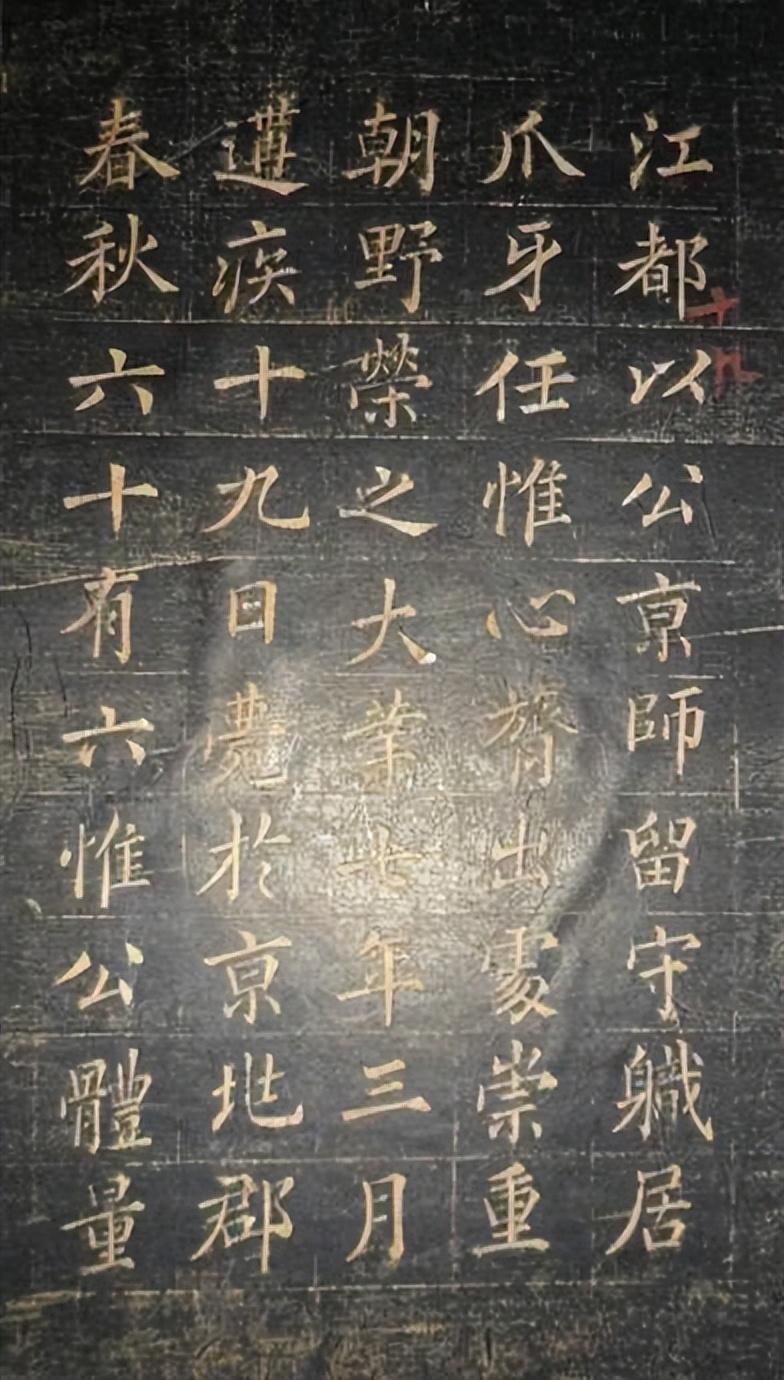 江都以公京師留守軄居
爪牙任惟心膂出處崇重
朝野榮之大業七年三月
遘疾十九日薨於京兆郡
春秋六十有六惟公體量
十九